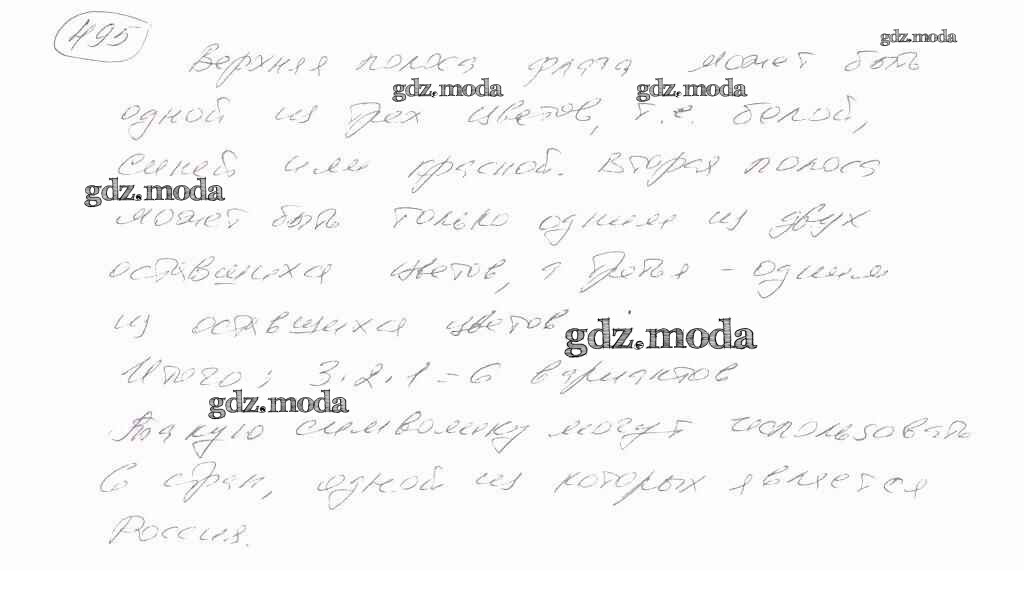 495
gdz.moda
Верхняя полоса флага может быть
gdz.moda gdz.moda
одной из трех цветов, т.е. белой,
синей или красной. Вторая полоса
gdz.moda
может быть только одним из двух
оставшихся цветов, а третья - одним
из оставшихся цветов
gdz.moda
Итого: 3·2·1=6 вариантов
gdz.moda
Такую символику могут использовать
6 стран, одной из которых является
Россия.